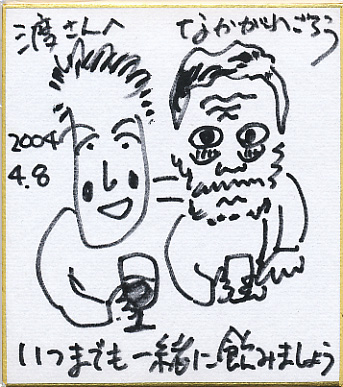 渡さんへ
なかがわごろう
2004
4.8
いつまでも一緒に飲みましょう